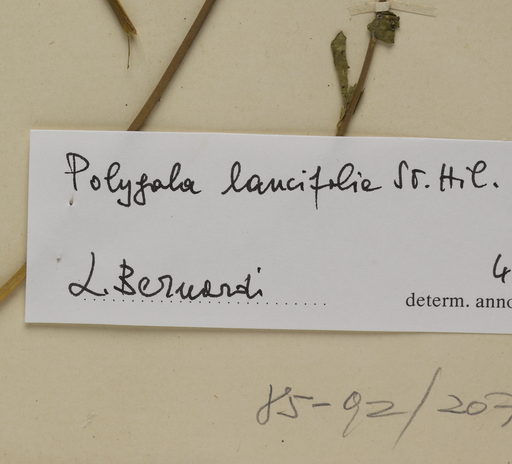 Polygala lancifolia St. Hil.
L. Bernardi 4
determ. anno
85-92/207